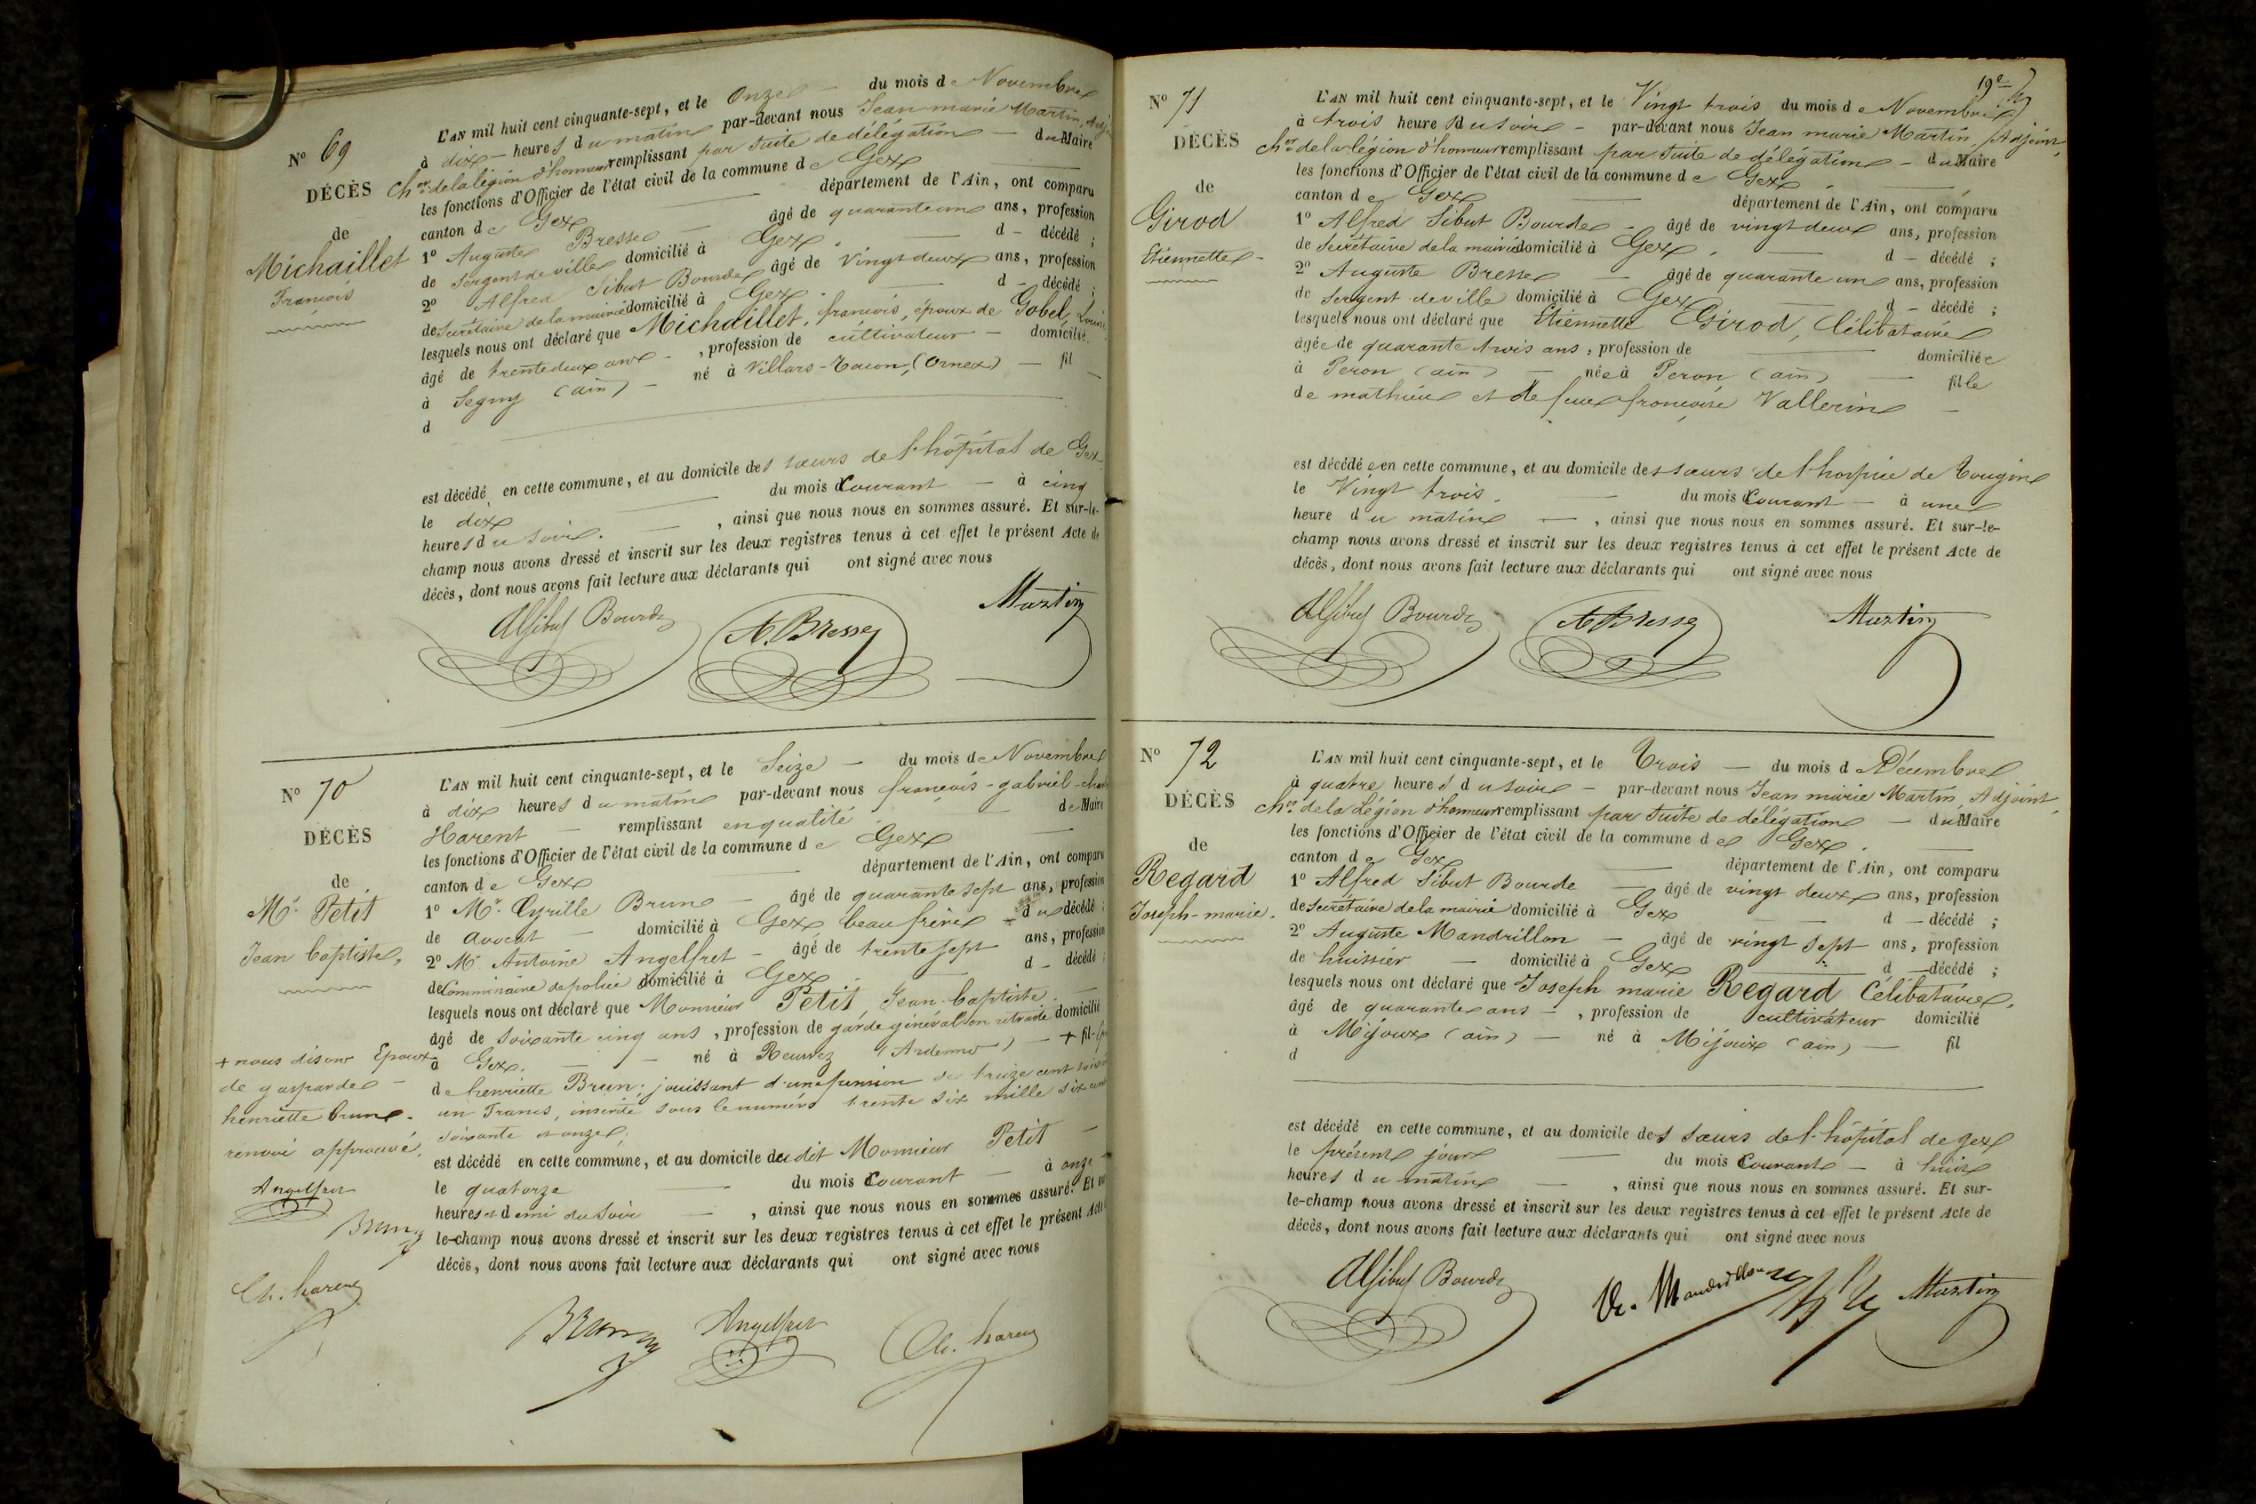 N° 69
DÉCÈS
de
Michaillet
François
L'AN mil huit cent cinquante-sept, et le Onze du mois de Novembre
à dix heures du matin par-devant nous Jean marie Martin, Adj
Cher de la légion d'honneur remplissant par suite de délégation du Maire
les fonctions d'Officier de l'état civil de la commune de Gex
canton de Gex département de l'Ain, ont comparu
1° Auguste Bresse âgé de quarante un ans, profession
de Sergent de ville domicilié à Gex d décédé ;
2° Alfred Sibut Bourde âgé de vingt deux ans, profession
de Secrétaire de la mairie domicilié à Gex d décédé ;
lesquels nous ont déclaré que Michaillet, françois, époux de Gobel, Louise
âgé de trente deux ans, profession de cultivateur domicilié
à Segny (ain) né à Villars-Tacon, (Ornex) fil
d
est décédé en cette commune, et au domicile des sœurs de l'hôpital de Gex
le dix du mois courant à cinq
heures du soir, ainsi que nous nous en sommes assuré. Et sur-le-
champ nous avons dressé et inscrit sur les deux registres tenus à cet effet le présent Acte de
décès, dont nous avons fait lecture aux déclarants qui ont signé avec nous
A Sibut Bourde A. Bresse Martin
N° 70
DÉCÈS
de
Mr. Petit
Jean Baptiste,
L'AN mil huit cent cinquante-sept, et le Seize du mois de Novembre
à dix heures du matin par-devant nous françois-gabriel-
Harent remplissant en qualité de Maire
les fonctions d'Officier de l'état civil de la commune de Gex
canton de Gex département de l'Ain, ont comparu
1° Mr. Cyrille Brun âgé de quarante sept ans, profession
de avocat domicilié à Gex beau frère du décédé ;
2° Mr Antoine Angelfret âgé de trente sept ans, profession
de Commissaire de police domicilié à Gex d décédé ;
lesquels nous ont déclaré que Monsieur Petit Jean-baptiste
âgé de soixante cinq ans, profession de garde général en retraite domicilié
à Gex. né à Reurvez (Ardennes) + fil
de henriette Brun; jouissant d'une pension de treize cent soix
un francs, inscrite sous le numéro trente six mille six cent
soixante et onze,
est décédé en cette commune, et au domicile du dit Monsieur Petit
le quatorze du mois courant à onze
heures et demi du soir, ainsi que nous nous en sommes assuré. Et sur
le-champ nous avons dressé et inscrit sur les deux registres tenus à cet effet le présent Acte
décès, dont nous avons fait lecture aux déclarants qui ont signé avec nous
+ nous disons Epoux
de gasparde
henriette brun.
renvoi approuvé.
Angelfret
Brun
Ch. harent
Brun Angelfret Ch. harent
19e
N° 71
DÉCÈS
de
Girod
Etiennette
L'AN mil huit cent cinquante-sept, et le Vingt trois du mois de Novembre
à trois heures du soir par-devant nous Jean marie Martin, Adjoint,
Cher de la légion d'honneur remplissant par suite de délégation du Maire
les fonctions d'Officier de l'état civil de la commune de Gex
canton de Gex département de l'Ain, ont comparu
1° Alfred Sibut Bourde âgé de vingt deux ans, profession
de Secrétaire de la mairie domicilié à Gex d décédé ;
2° Auguste Bresse âgé de quarante un ans, profession
de Sergent de ville domicilié à Gex d décédé ;
lesquels nous ont déclaré que Etiennette Girod, Célibataire
âgée de quarante trois ans, profession de domiciliée
à Peron (ain) née à Peron (ain) fille
de mathieu et de feue françoise Vallerin
est décédée en cette commune, et au domicile des sœurs de l'hospice de Tougin
le Vingt trois. du mois courant à une
heure du matin, ainsi que nous nous en sommes assuré. Et sur-le-
champ nous avons dressé et inscrit sur les deux registres tenus à cet effet le présent Acte de
décès, dont nous avons fait lecture aux déclarants qui ont signé avec nous
A Sibut Bourde A Bresse Martin
N° 72
DÉCÈS
de
Regard
Joseph-marie.
L'AN mil huit cent cinquante-sept, et le Trois du mois d Décembre
à quatre heures du soir par-devant nous Jean marie Martin, Adjoint,
Cher de la Légion d'honneur remplissant par suite de délégation du Maire
les fonctions d'Officier de l'état civil de la commune de Gex
canton de Gex département de l'Ain, ont comparu
1° Alfred Sibut Bourde âgé de vingt deux ans, profession
de secrétaire de la mairie domicilié à Gex d décédé ;
2° Auguste Mandrillon âgé de vingt sept ans, profession
de huissier domicilié à Gex d décédé ;
lesquels nous ont déclaré que Joseph marie Regard Célibataire,
âgé de quarante ans, profession de cultivateur domicilié
à Mijoux (ain) né à Mijoux (ain) fil
d
est décédé en cette commune, et au domicile des sœurs de l'hôpital de gex
le présent jour du mois courant à huit
heures du matin, ainsi que nous nous en sommes assuré. Et sur-
le-champ nous avons dressé et inscrit sur les deux registres tenus à cet effet le présent Acte de
décès, dont nous avons fait lecture aux déclarants qui ont signé avec nous
A Sibut Bourde Mandrillon Martin